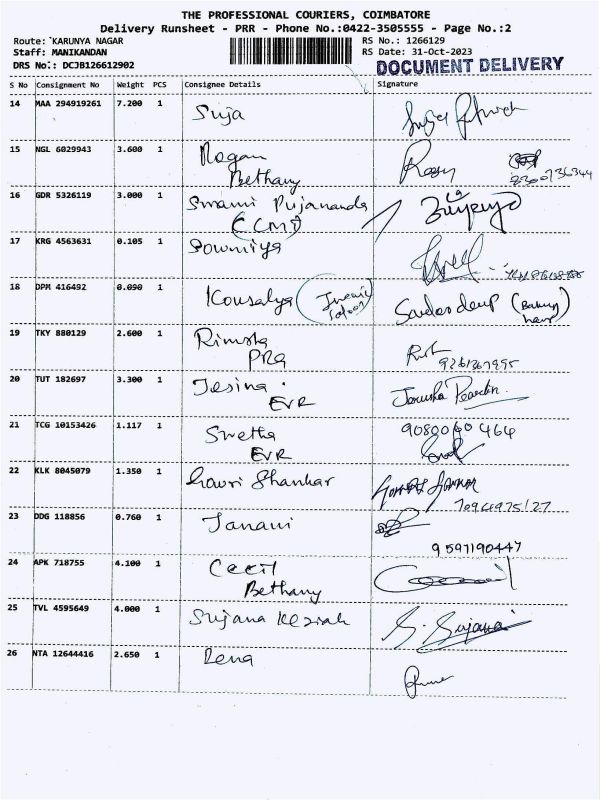 THE PROFESSIONAL COURIERS, COIMBATORE
Delivery Runsheet - PRR - Phone No.:0422-3505555 - Page No.:2
Route: KARUNYA NAGAR
RS No.: 1266129
Staff: MANIKANDAN
RS Date: 31-Oct-2023
DRS No.: DCJB126612902
DOCUMENT DELIVERY
S No Consignment No Weight PCS Consignee Details Signature
14 MAA 294919261 7.200 1 Suja
15 NGL 6029943 3.600 1 Rosy
Bethany
16 GDR 5326119 3.000 1 Swami Pujananda
CCMD
17 KRG 4563631 0.105 1 Sowmiya
18 DPM 416492 0.090 1 Kousalya
19 TKY 880129 2.600 1 Rimsha
PRG
20 TUT 182697 3.300 1 Jesina
EVR
21 TCG 10153426 1.117 1 Swetha 9080060464
EVR
22 KLK 8045079 1.350 1 Gowri Shankar
23 DDG 118856 0.760 1 Janani
9597190447
24 APK 718755 4.100 1 Cecil
Bethany
25 TVL 4595649 4.000 1 Sujana Keziah S. Sujana
26 NTA 12644416 2.650 1 Rena